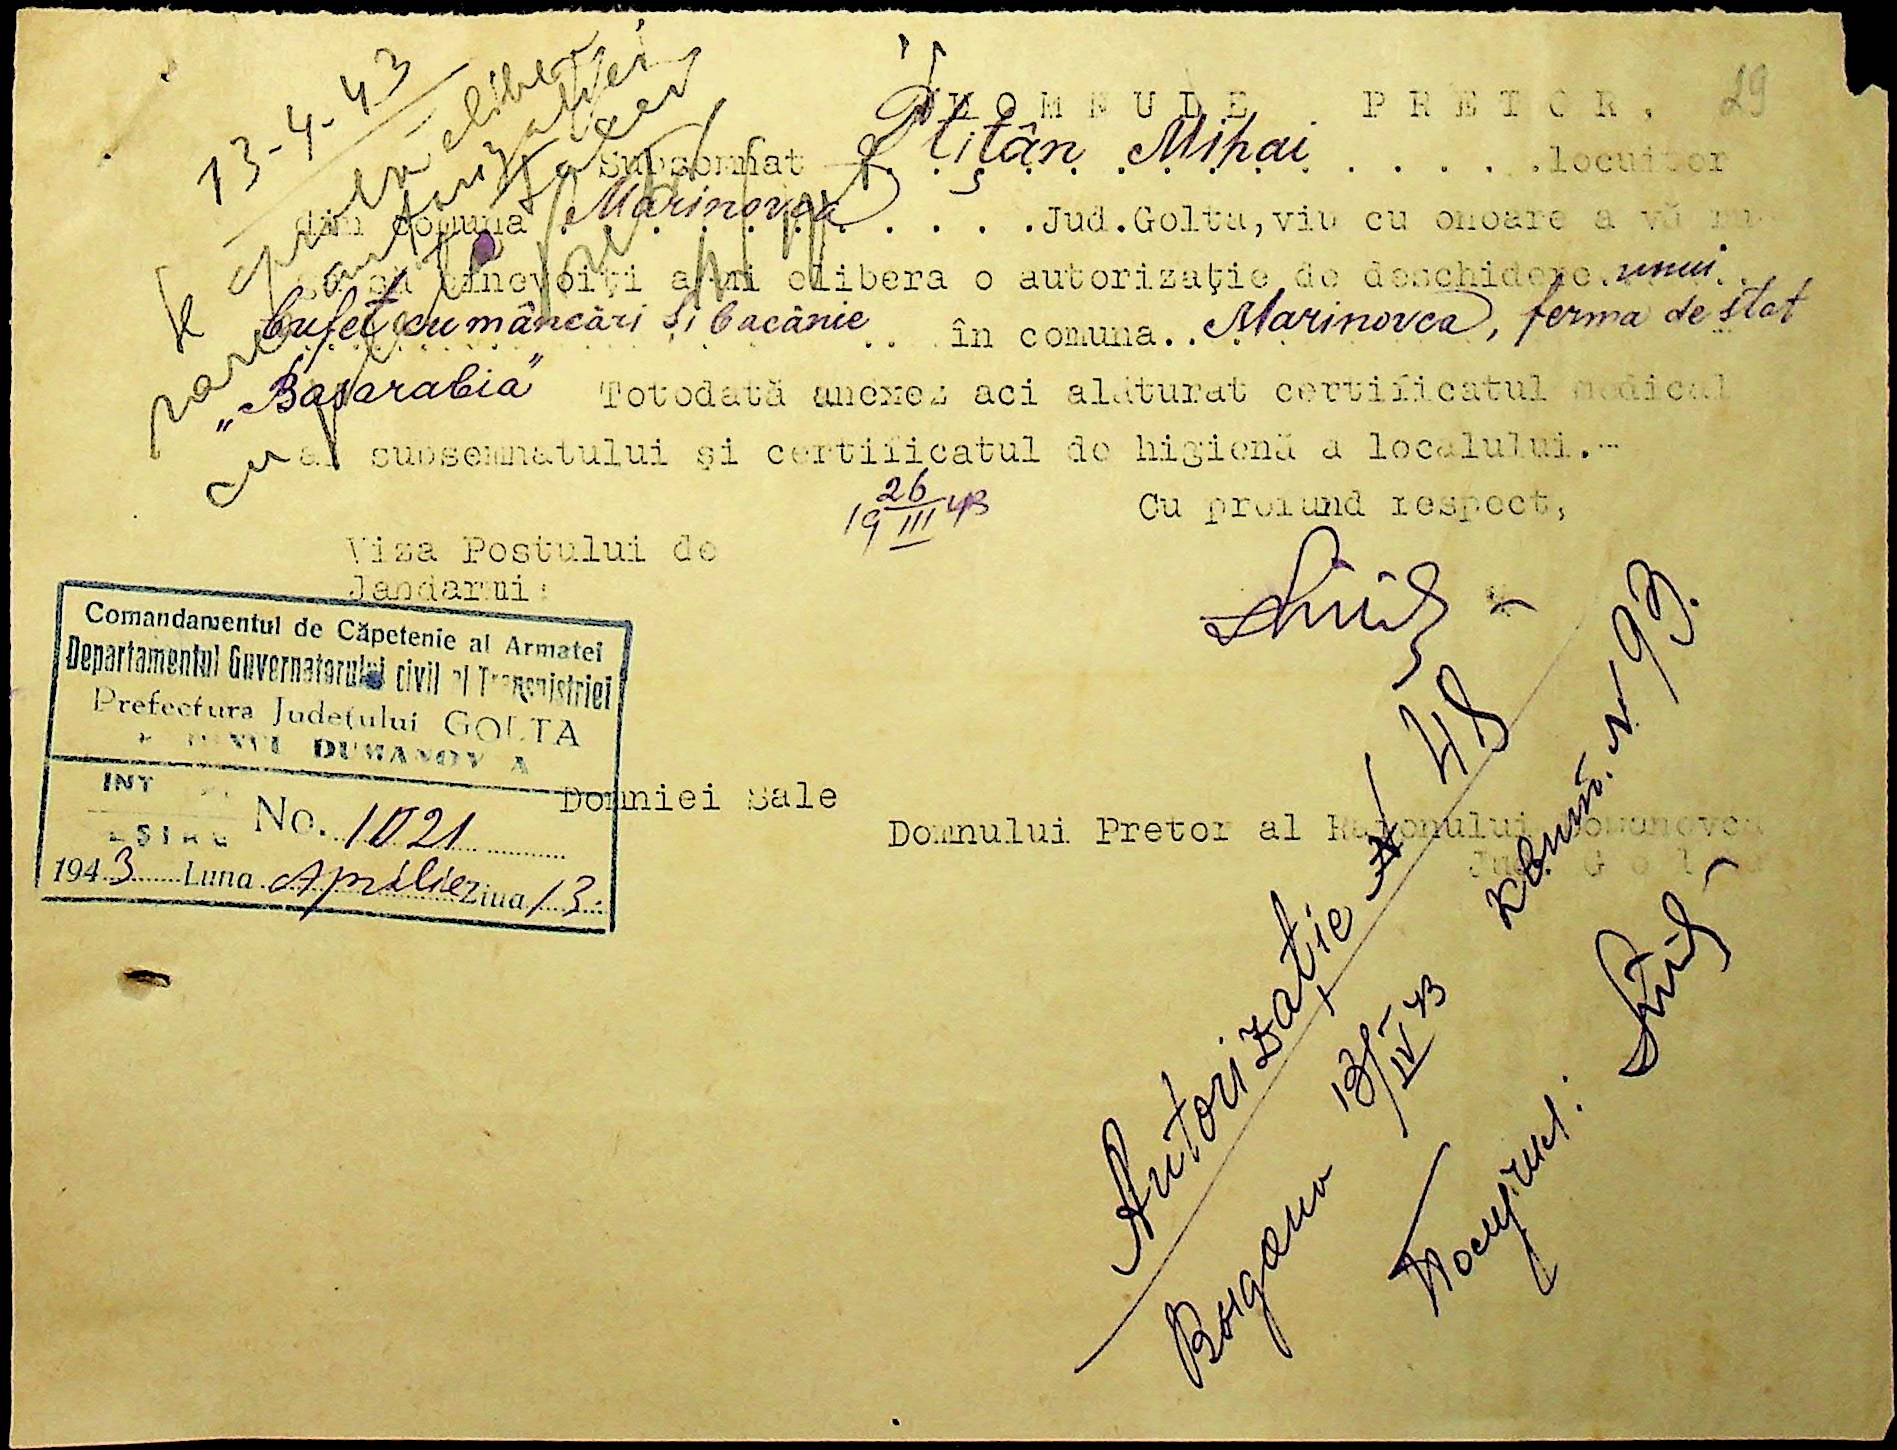 29
DOMNULE PRETOR,
Subsemnat Știțân Mihai locuitor
din comuna Marinovca Jud.Golta,viu cu onoare a vă
să binevoiți a-mi elibera o autorizație de deschidere unui
bufet cu mâncări și băcănie în comuna Marinovca, ferma de stat
„Basarabia” Totodată anexez aci alăturat certificatul medical
al subsemnatului și certificatul de higienă a localului.-
26
19 III 43
Cu profund respect,
Viza Postului de
Jandarmi:
Domniei Sale
Domnului Pretor al Raionului Domanovca
Jud. Golta
13-4-43
Se aprobă elibera
autorizației
cu
Comandamentul de Căpetenie al Armatei
Departamentul Guvernatorului civil al Transnistriei
Prefectura Județului GOLTA
DUMANOV A
INT
No. 1021
EȘIRE
1943 Luna Aprilie Ziua 13
Autorizație N 48
13/IV 43
N 93.